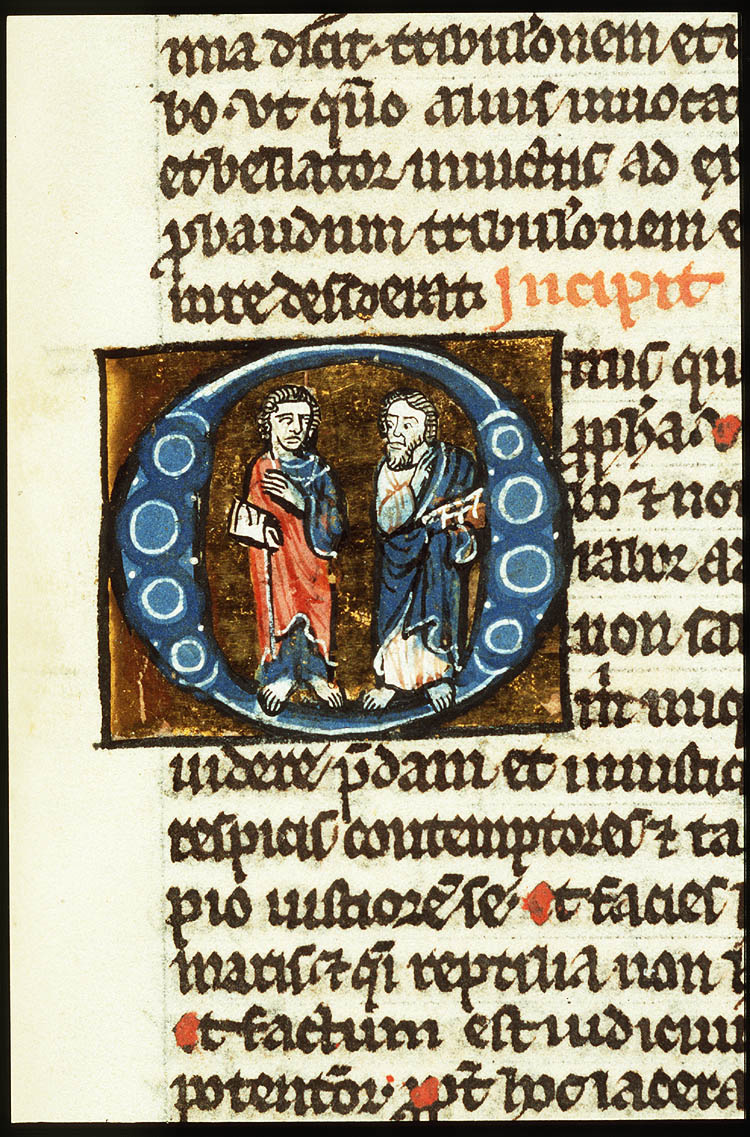 mia dicit. tribul'onem et i
bo. vt qn̄o alius inuoca
et bellator inuictus ad ex
ꝓbandum tribul'onem e
inire desiderat. Incipit
Onus qu
ꝓph̄a.
bo ⁊ non
rabor ad
non sal
m̄ iniq
uidere p̄dam et iniustic
respicis contemptores ⁊ ta
pio iustiorē se. Et facies
maris ⁊ q̄i reptilia non h
Et factum est iudiciu
potentior. ꝓpt̄ hoc lacera